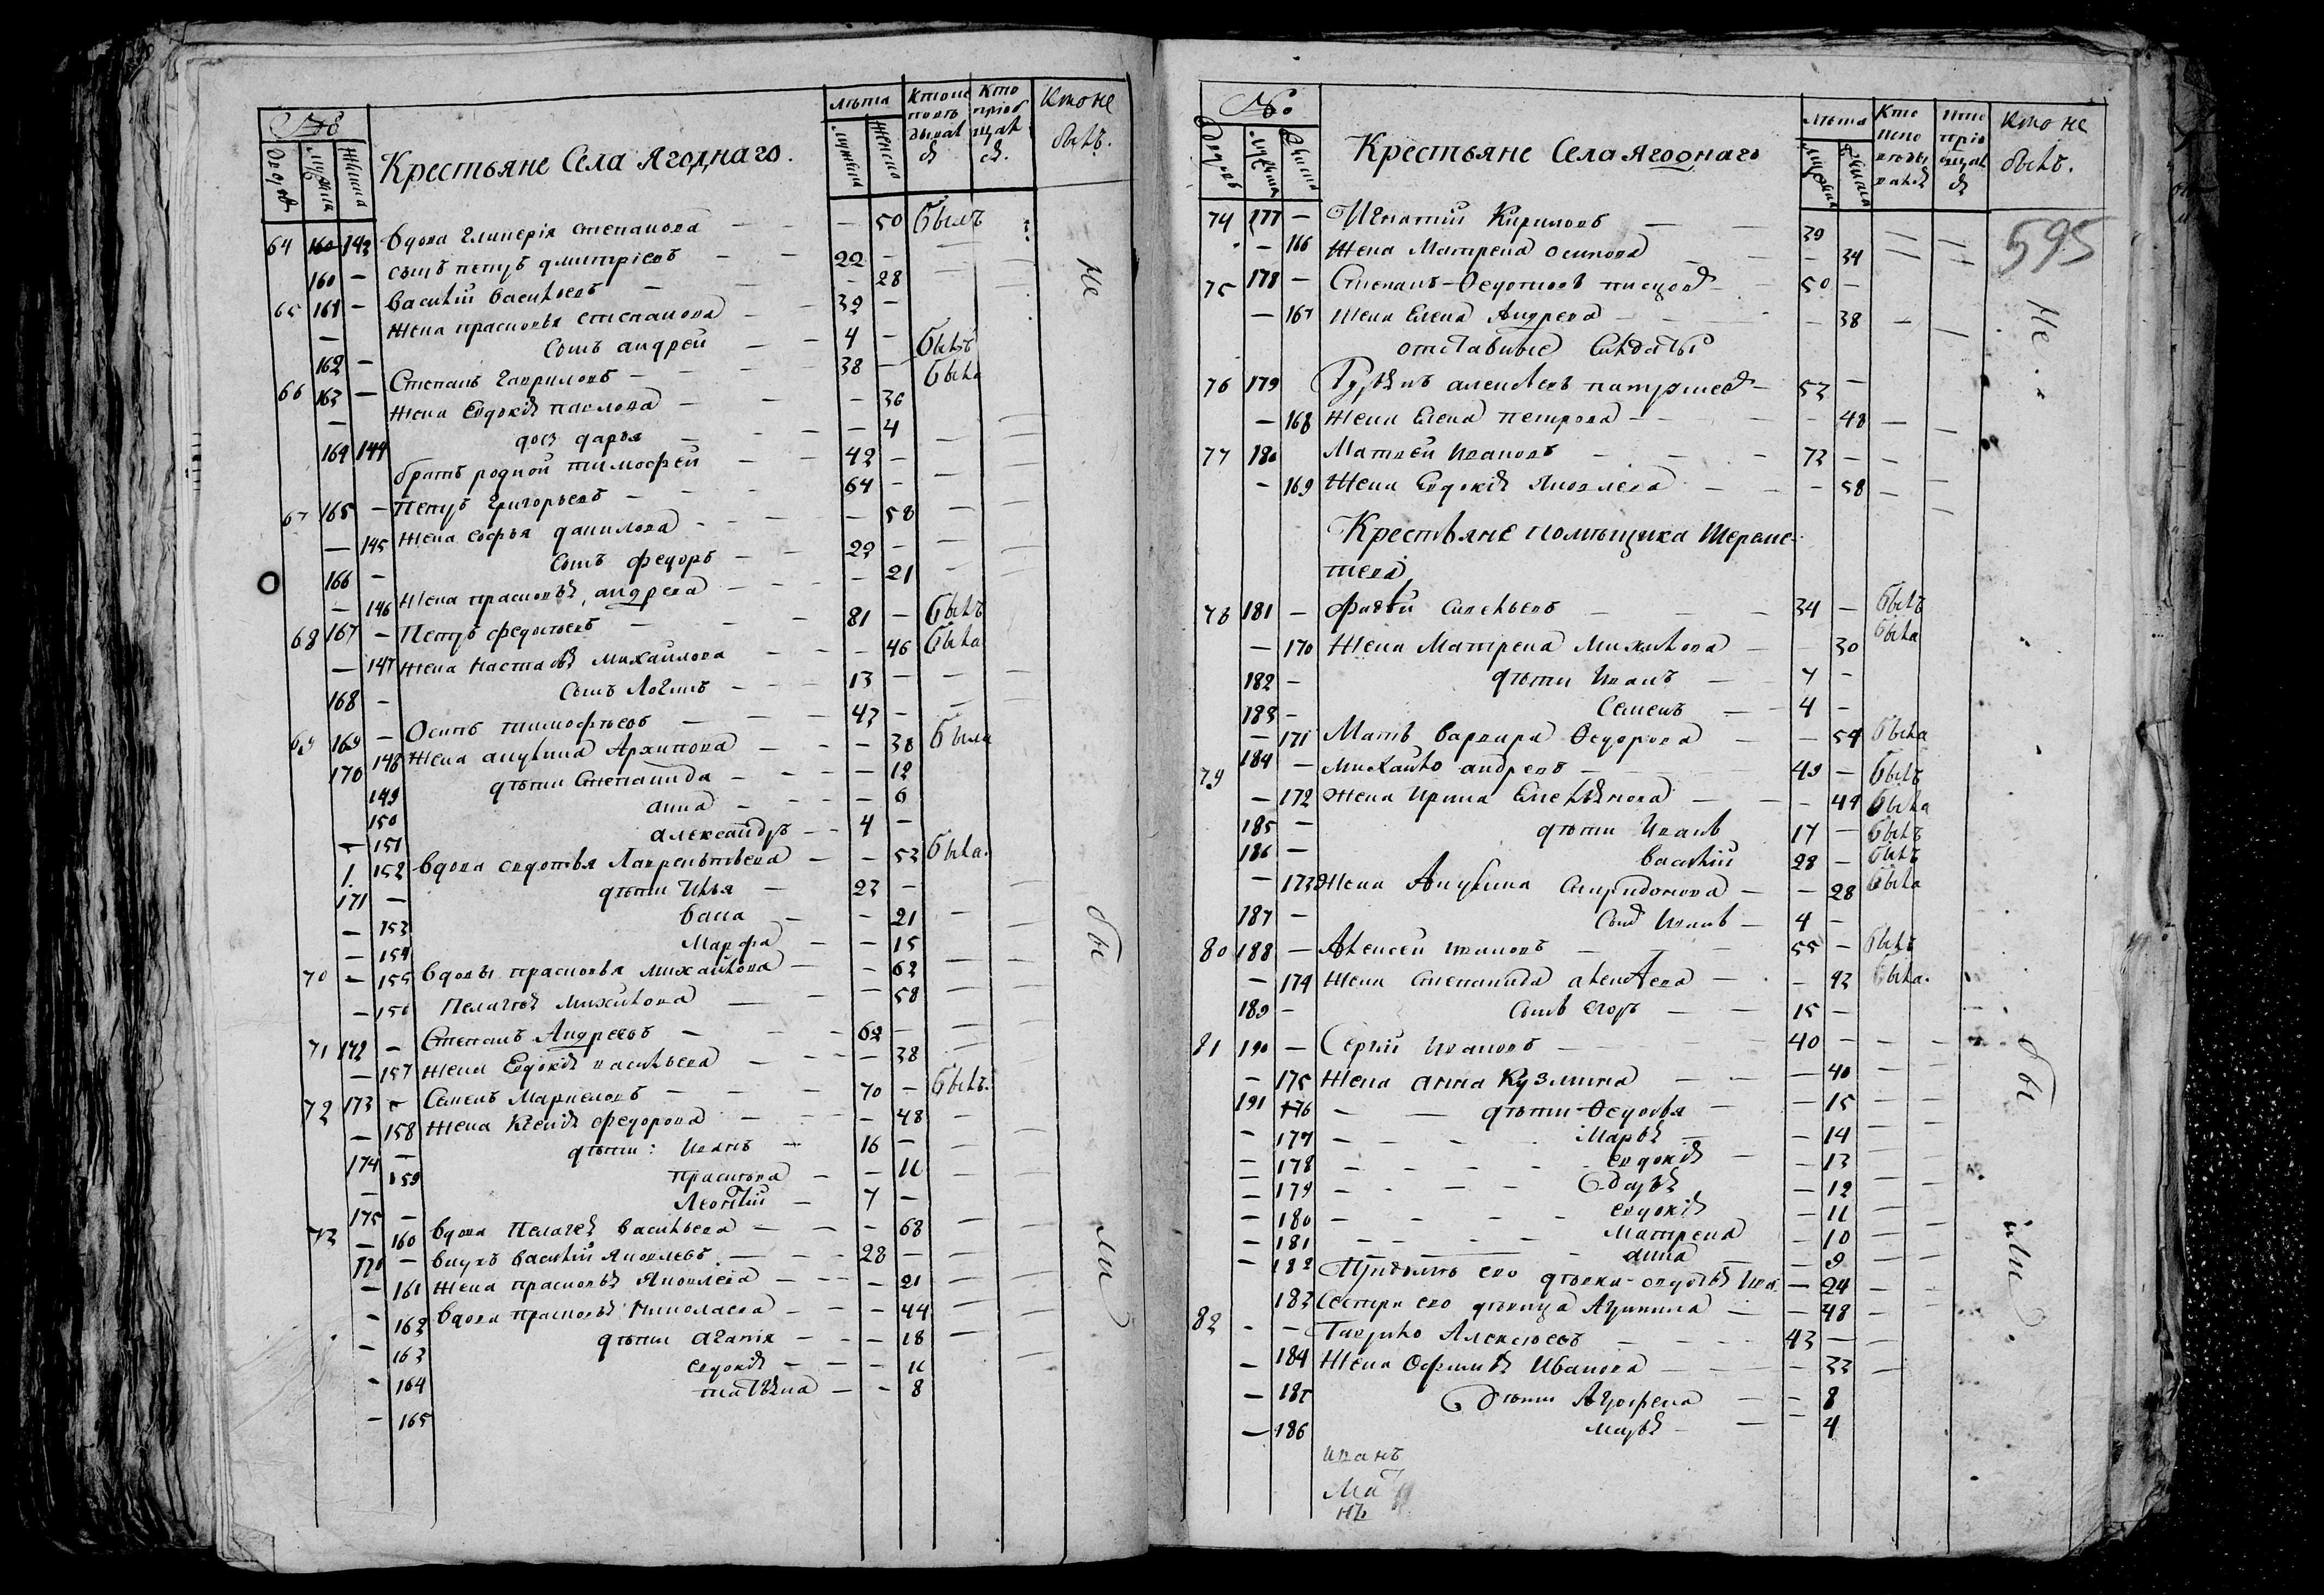 №
Дворовъ
Мужеска
Женска
Крестьяне Села Ягоднаго.
лѣта
мужеска
женска
Кто исповѣдывался
Кто пріобщался.
Кто не былъ.
64 160 143 вдова Гликерія Степанова — — 50 былъ
160 — сынъ петръ дмитріевъ — 22 —
65 161 — василій васильевъ — 28
— жена прасковья Степанова — 32 —
162 — сынъ андрей — 4 — былъ
66 163 — Степанъ Гавриловъ — 38 — была
— жена Евдокія павлова — 36
164 144 дочь дарья — 4
братъ родной тимофей — 42 —
67 165 — Петръ Григорьевъ — 64 —
— 145 жена Софья данилова — 58
166 — сынъ федоръ — 22 —
— 146 жена прасковья андреева — 21
68 167 — Петръ федотьевъ — 81 — былъ
— 147 жена настасья михайлова — 46 была
168 — сынъ Логинъ — 13 —
69 169 — Осипъ тимофѣевъ — 43 —
170 148 жена акулина Архипова — 38 была
149 дѣти Степанида — 12
150 анна — 6
— 151 александръ — 4 —
1 152 вдова евдотья Лаврентьева — 53 была.
171 — дѣти Илья — 23 —
— 153 васа — 21
— 154 Марфа — 15
70 — 155 вдовы прасковья михайлова — 62
— 156 Пелагея михайлова — 58
71 172 — Степанъ Андреевъ — 62 —
— 157 жена Евдокія васильева — 38
72 173 — Семенъ Маркеловъ — 70 — былъ.
— 158 жена Ксенія федорова — 48
174 — дѣти: иванъ — 16 —
— 159 прасковья — 11
175 — Леонтій — 7 —
73 — 160 вдова Пелагея васильева — 68
176 — внукъ василій яковлевъ — 28 —
— 161 жена прасковья яковлева — 21
— 162 вдова прасковья николаева — 44
— 163 дѣти агапія — 18
— 164 евдокія — 11
— 165 татьяна — 8
не
бы
ли
№
Дворовъ
Мужеска
Женска
Крестьяне Села Ягоднаго
лѣта
мужеска
женска
Кто исповѣдывался
Кто пріобщался
Кто не былъ.
595
74 177 — Игнатий Кириловъ — 39
— 166 жена Матрена осипова — 34
75 178 — Степанъ Федотовъ писцовъ — 50 —
— 167 жена Елена Андреева — 38
отставные Солдаты
76 179 алексѣевъ — 53 —
— 168 жена Елена петрова — 48
77 180 Матвей ивановъ — 73 —
— 169 жена Евдокія яковлева — 58
Крестьяне помѣщика Шереме-
тева
78 181 — фадѣй савельевъ — 34 — былъ
— 170 жена Матрена михайлова — 30 была
182 — дѣти иванъ — 7 —
183 — семенъ — 4 —
— 171 Мать варвара Федорова — 54 была
79 184 — михайло андреевъ — 49 — былъ
— 172 жена ирина Емельянова — 44 была
185 — дѣти иванъ 17 — былъ
186 — василій 28 — былъ
— 173 жена Акулина Спиридонова — 28 была
187 — сынъ иванъ — 4 —
80 188 — Алексей ивановъ — 55 — былъ
— 174 жена степанида алексѣева — 43 была.
189 — сынъ егоръ — 15 —
81 190 — Сергѣй ивановъ — 40 —
— 175 жена анна Кузмина — 40
191 176 — дѣти Федосья — 15
— 177 Марья — 14
— 178 евдокія — 13
— 179 дарья — 12
— 180 евдокія — 11
— 181 матрена — 10
— 182 анна — 9
его дѣвки ива — 24
183 сестра его дѣвица Акулина — 48
82 — Гаврило Алексѣевъ — 43 —
— 184 жена Офимья Иванова — 33
— 185 дѣти Агрофена — 8
— 186 марья — 4
иванъ
Ма
нъ
не
бы
ли.